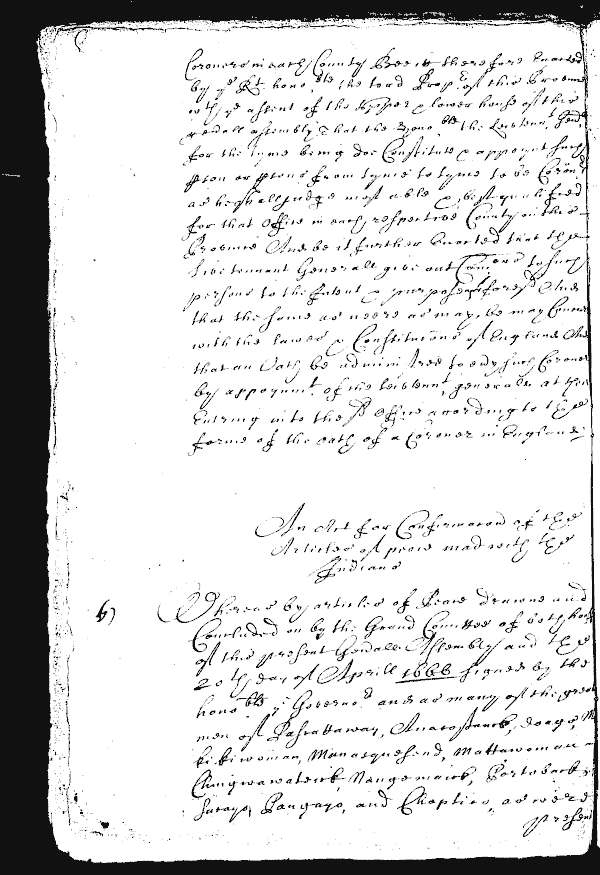 Coroners in each County Bee it therefore Enacted
by ye Rt. honoble the Lord Propr of this Province
wth ye assent of the Upper & lower house of this
genall assembly That the honoble the Leutennt Genll
for the tyme being doe Constitute & appoynt such
pson or psons from tyme to tyme to be Coronr
as he shall judge most able & best qualified
for that Office in each respective County in this
Province And be it further Enacted that the
Lieutennant Generall give out Comōns to such
persons to the Intent & purpose aforesd And
that the same as neere as may be may Concur
with the lawes & Constitucōns of England And
that an Oath be administred to every such Coroner
by appoyntmt of the leiutennt generall at their
Entring into the sd Office according to the
forme of the oath of a Coroner in England
An Act for Confirmacōn of the
Articles of peace mad with the
Indians
6) Whereas by articles of Peace drawne and
Concluded on by the Grand Comittee of both houses
of this present Genall Assembly and the
20th day of Aprill 1666 signed by the
honoble ye Governor and as many of the great
men of Pascattaway, Anacostanck, Doags, Mi
kikiwoman, Manasquesend, Mattawoman
Chingwawateick, Nangemaick, Portoback
Sacayo, Pangayo, and Choptico, as were
present